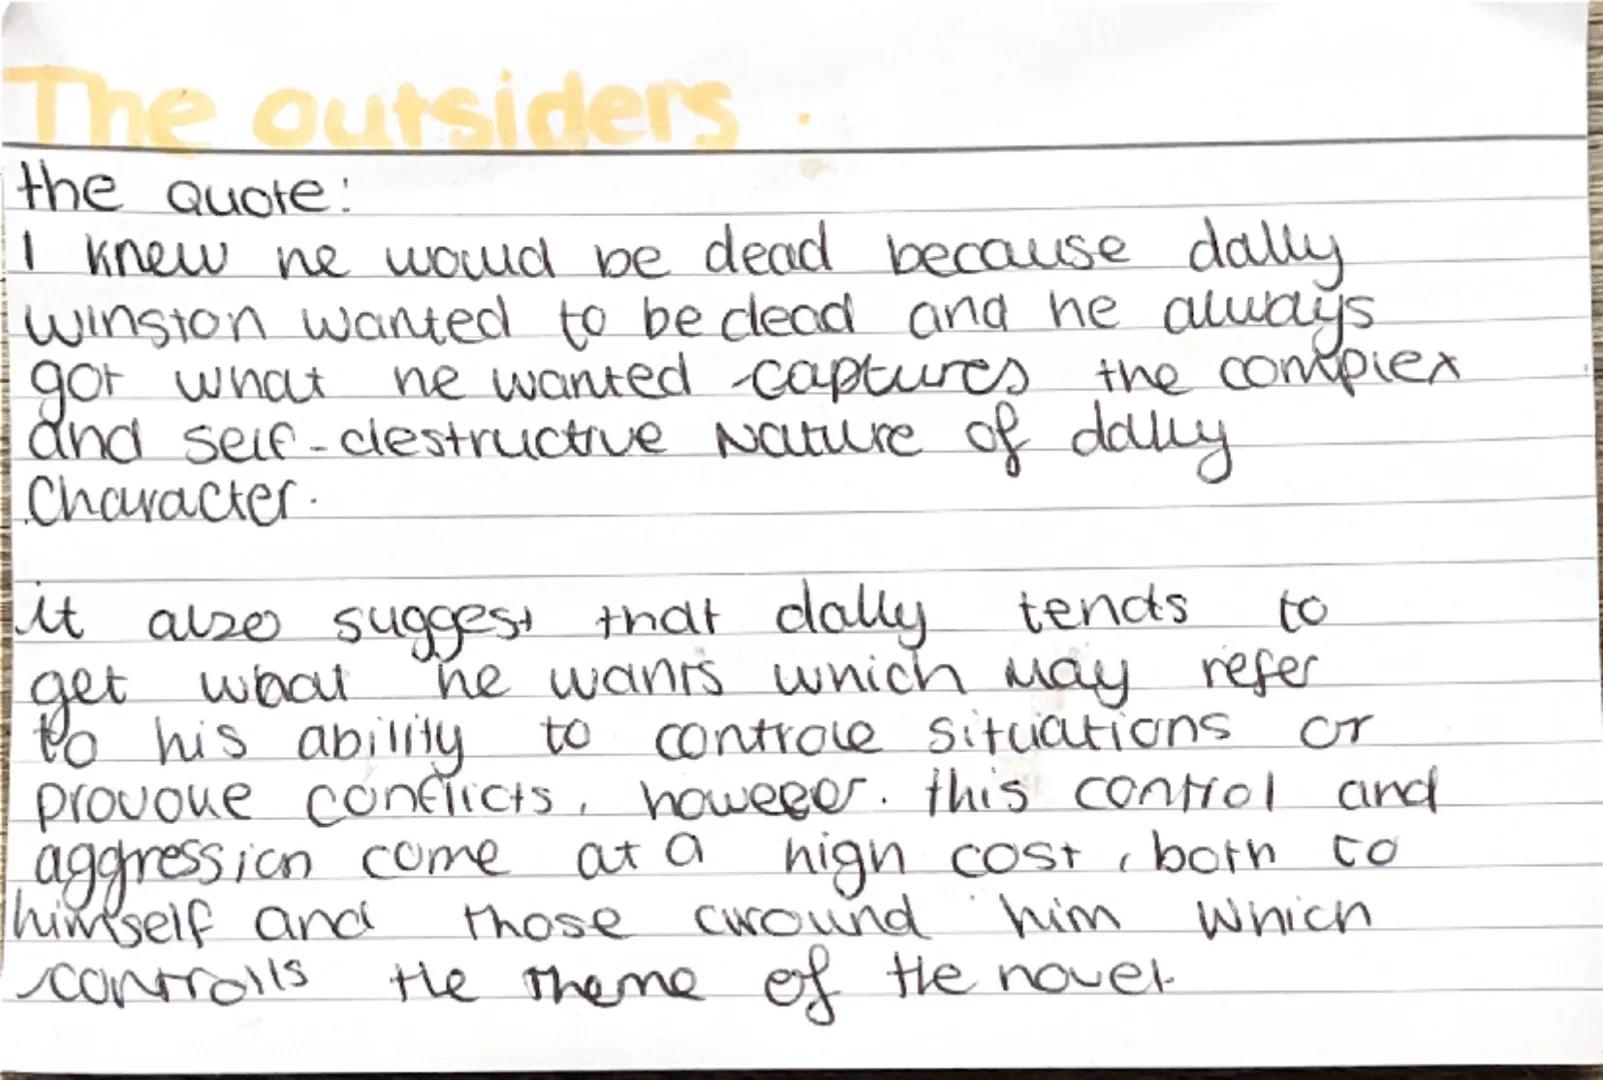 The outsiders.
the quote:
I knew he would be dead because dally
winston wanted to be dead and he always
got what he wanted captures the complex
and self-destructive Nature of dally
Character.
it also suggest that dally tends to
get what he wants which may refer
to his ability to controle situations or
provoke conflicts, however. this control and
aggression come at a high cost, both to
himself and those around him which
controlls the theme of the novel.